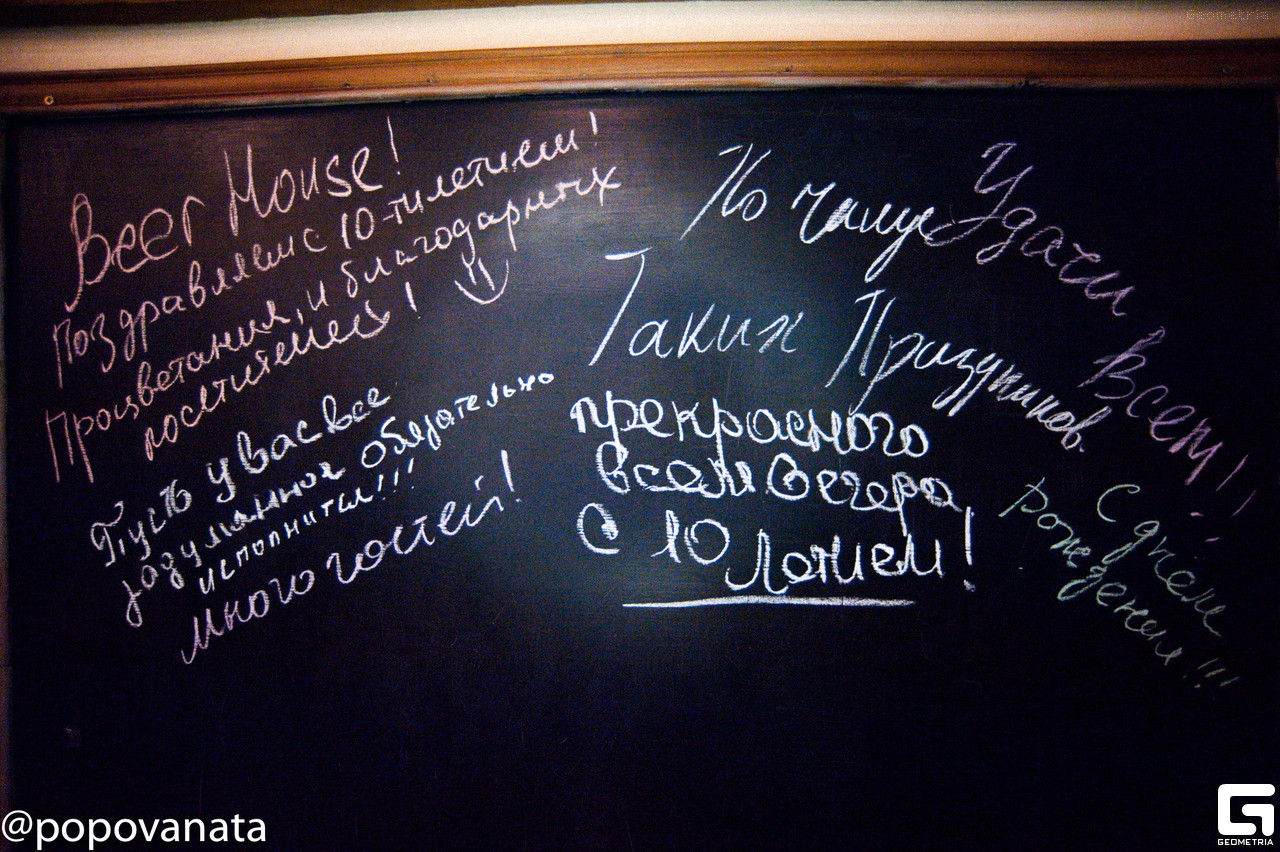 Beer House!
Поздравляем с 10-тилетием!
Процветания, и благодарных
посетителей!
Пусть у вас все
задуманное обязательно
исполнится!!!
Много гостей!
По чаще
Таких Праздников.
прекрасного
всем вечера
С 10 Летием!
Удачи Всем!
С днем
рождения!!!
@popovanata
GEOMETRIA
Geometria